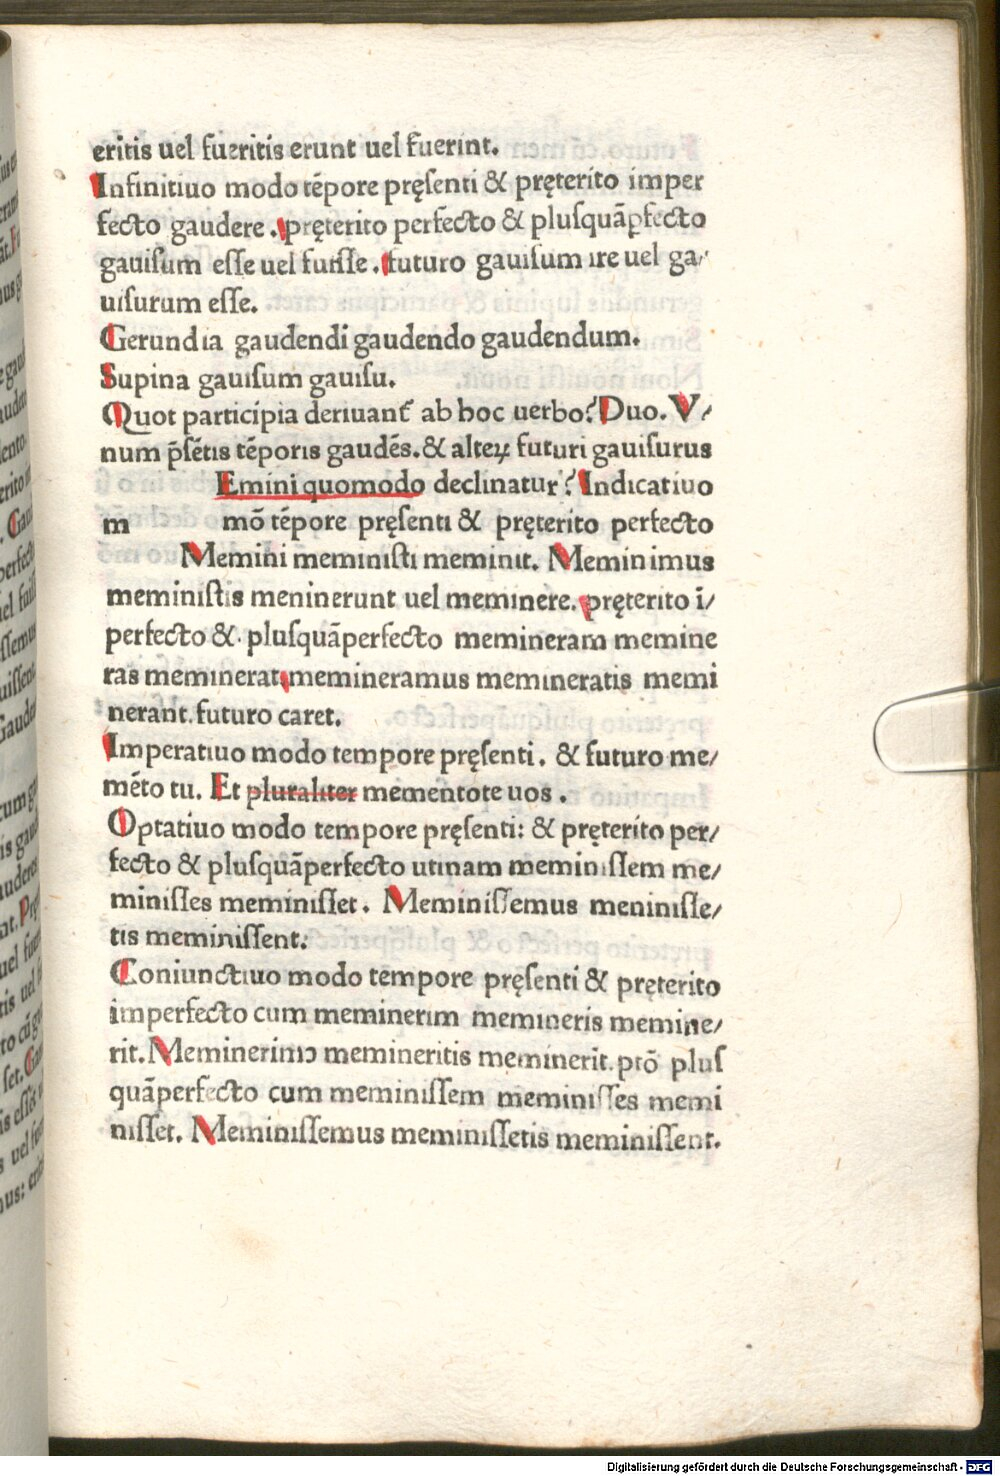 eritis uel fueritis erunt uel fuerint.
Infinitiuo modo tēpore pręſenti & pręterito imper
fecto gaudere. pręterito perfecto & pluſquāꝑfecto
gauiſum eſſe uel fuiſſe. futuro gauiſum ire uel ga/
uiſurum eſſe.
Gerundia gaudendi gaudendo gaudendum.
Supina gauiſum gauiſu.
Quot participia deriuant᷑ ab hoc uerbo? Duo. V/
num p̄ſētis tēporis gaudēs. & alteꝝ futuri gauiſurus
Emini quomodo declinatur? Indicatiuo
m mō tēpore pręſenti & pręterito perfecto
Memini meminiſti meminit. Meminimus
meminiſtis meninerunt uel meminere. pręterito ī/
perfecto &. pluſquāperfecto memineram memine
ras meminerat, memineramus memineratis memi
nerant. futuro caret.
Imperatiuo modo tempore pręſenti. & futuro me/
mēto tu. Et pluraliter mementote uos.
Optatiuo modo tempore pręſenti: & pręterito per/
fecto & pluſquāperfecto utinam meminiſſem me/
miniſſes meminiſſet. Meminiſſemus meniniſſe/
tis meminiſſent.
Coniunctiuo modo tempore pręſenti & pręterito
imperfecto cum meminerim memineris memine/
rit. Meminerimꝰ memineritis meminerit. ptō pluſ
quāperfecto cum meminiſſem meminiſſes memi
niſſet. Meminiſſemus meminiſſetis meminiſſent.
Digitalisierung gefördert durch die Deutsche Forschungsgemeinschaft - DFG